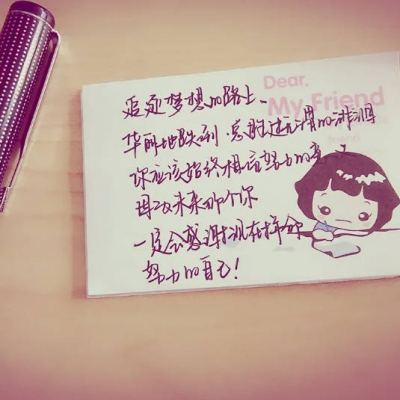 Dear.
My Friend
追逐梦想的路上、
华丽地跌倒,总胜过无谓的徘徊
你应该始终相信努力的
因为未来那个你
一定会感谢现在拼命
努力的自己!